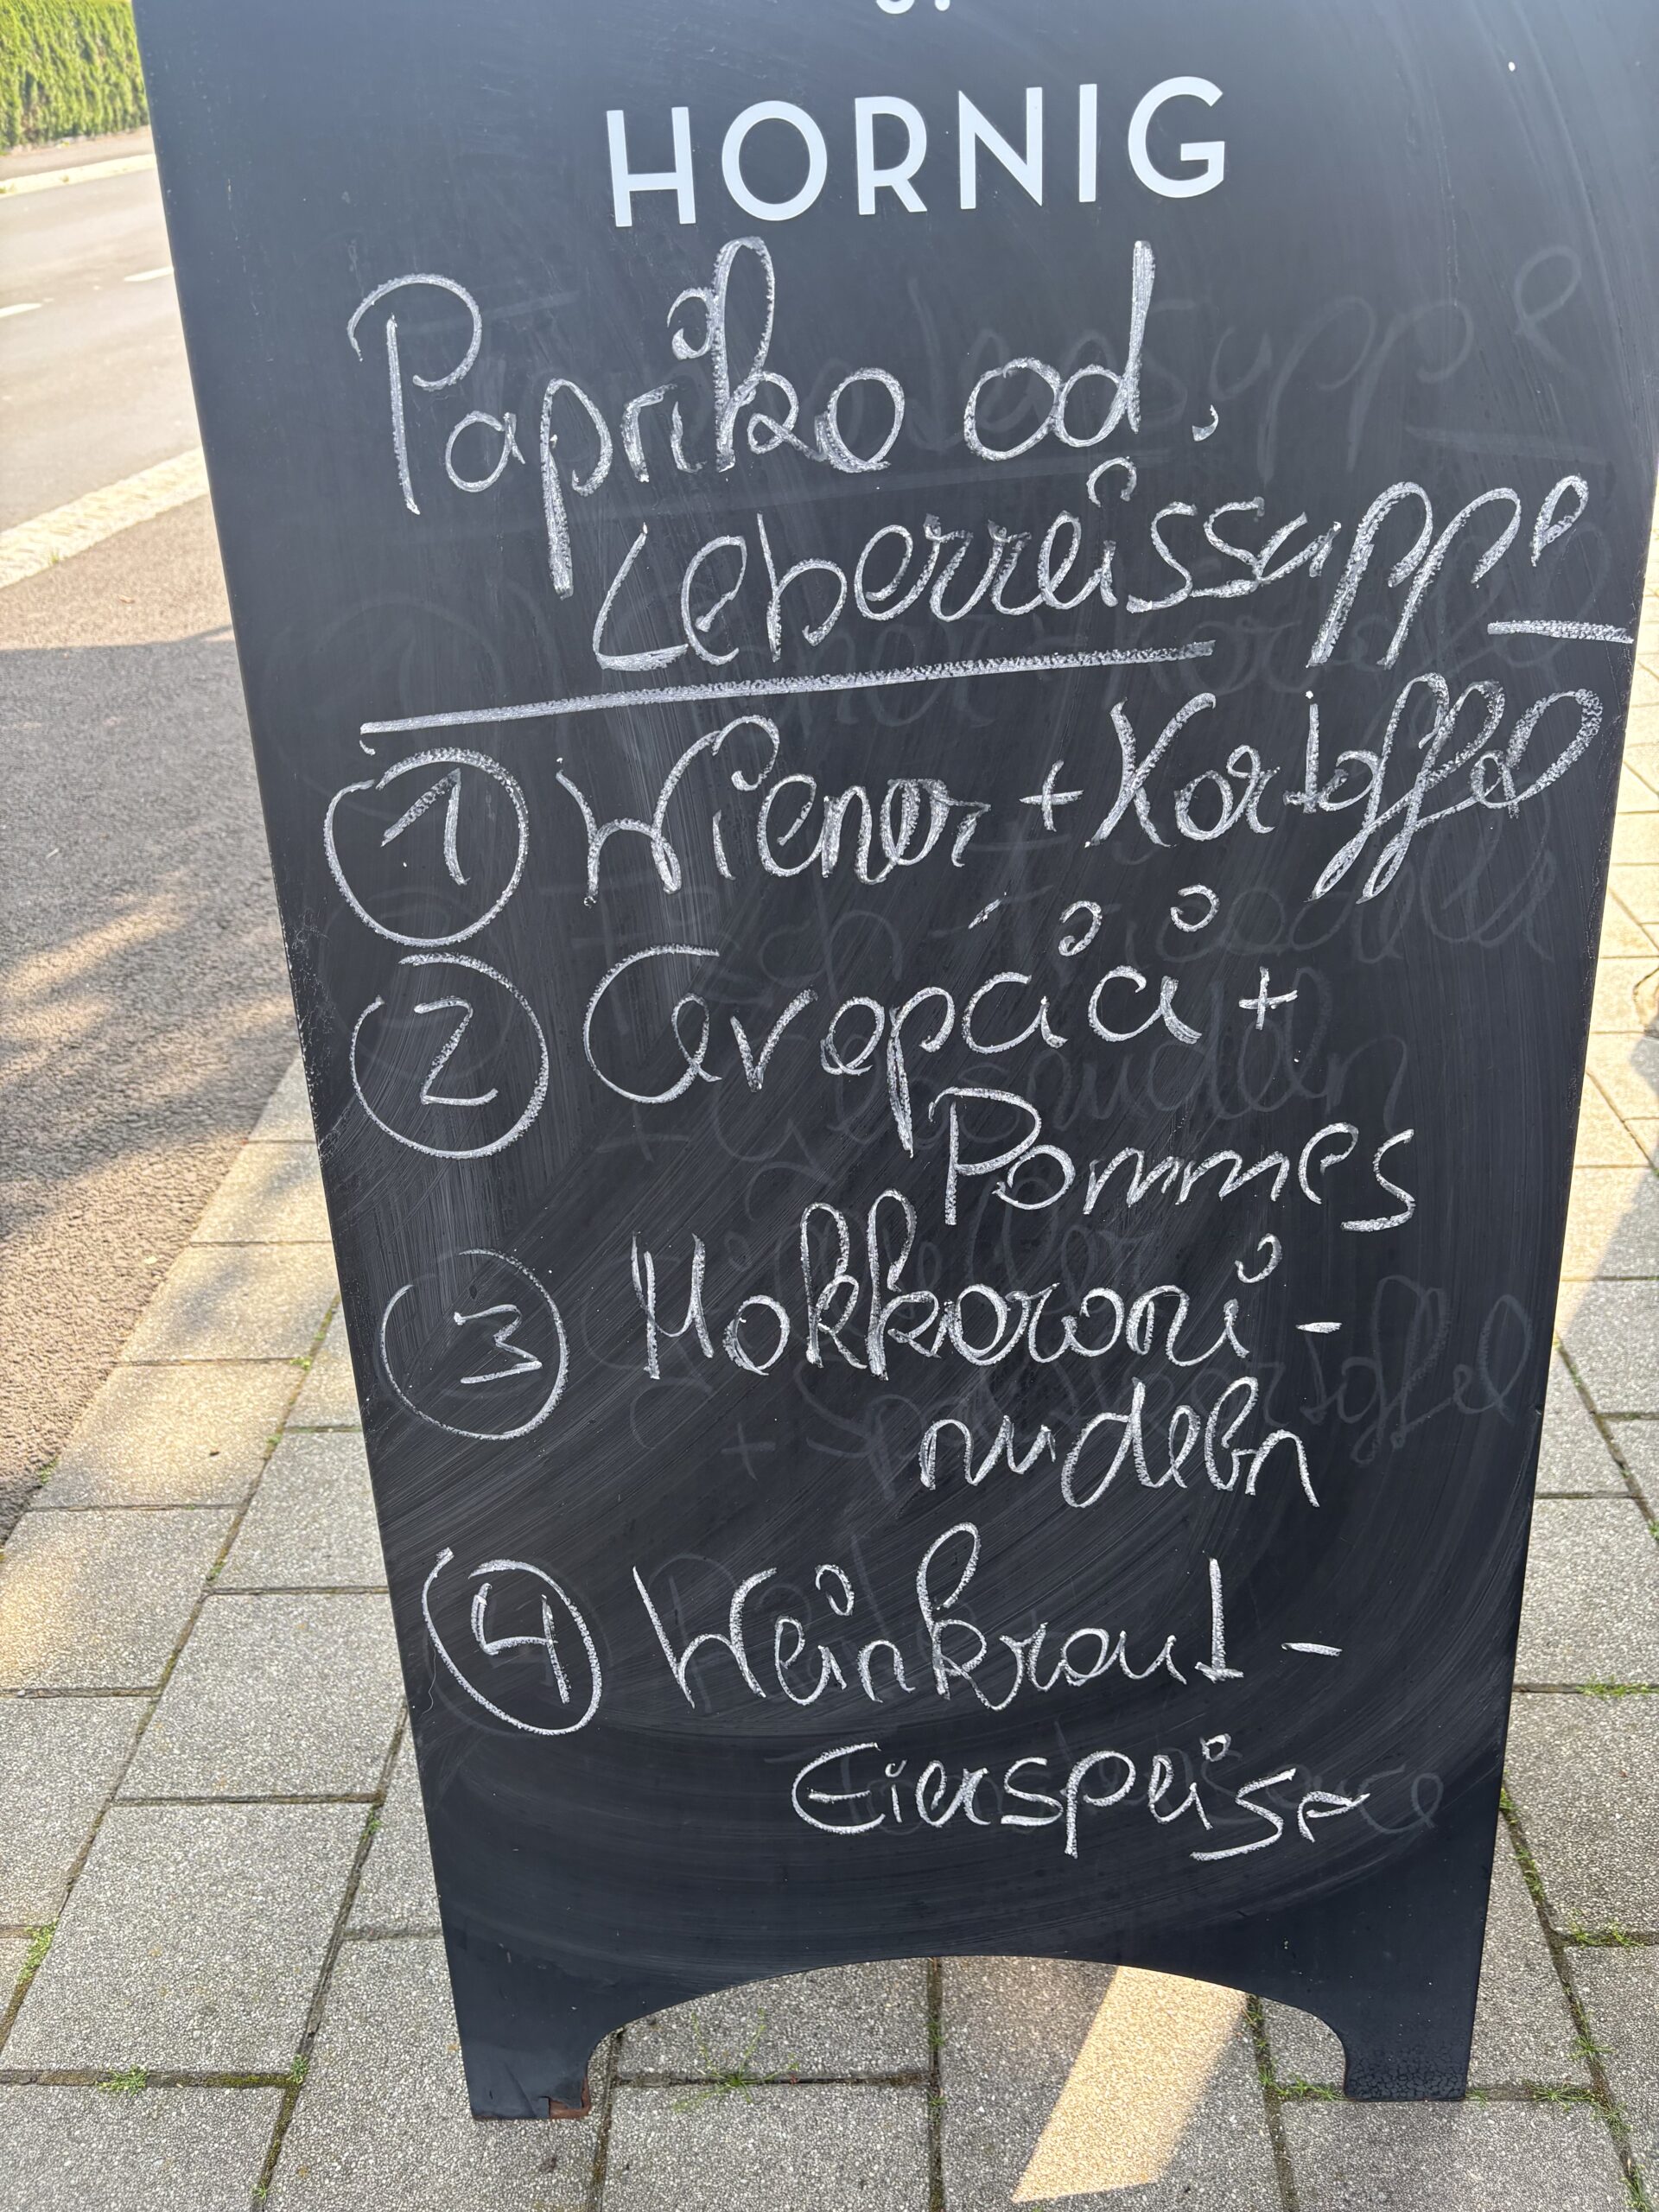 J.
HORNIG
Paprika od.
Leberreissuppe
1 Wiener + Kartoffel
2 Cevapcici +
Pommes
3 Makkaroni -
nudeln
4 Weinkraut -
Eierspeise